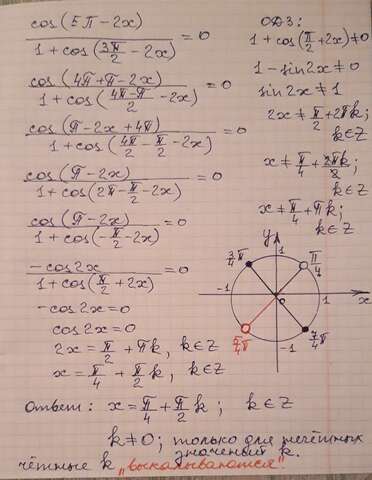 cos(5π-2x) / 1+cos(3π/2-2x) = 0
cos(4π+π-2x) / 1+cos(4π-π/2-2x) = 0
cos(π-2x+4π) / 1+cos(4π/2-π/2-2x) = 0
cos(π-2x) / 1+cos(2π-π/2-2x) = 0
cos(π-2x) / 1+cos(-π/2-2x) = 0
-cos2x / 1+cos(π/2+2x) = 0
-cos2x=0
cos2x=0
2x=π/2+πk, k∈Z
x=π/4+π/2k, k∈Z
ОДЗ:
1+cos(π/2+2x)≠0
1-sin2x≠0
sin2x≠1
2x≠π/2+2πk;
k∈Z
x≠π/4+2πk/2;
k∈Z
x≠π/4+πk;
k∈Z
y
1
3/4π
π/4
-1
0
1
x
5/4π
-1
7/4π
Ответ: x=π/4+π/2k; k∈Z
k≠0; только для нечётных
значений k.
чётные k "выкалываются"